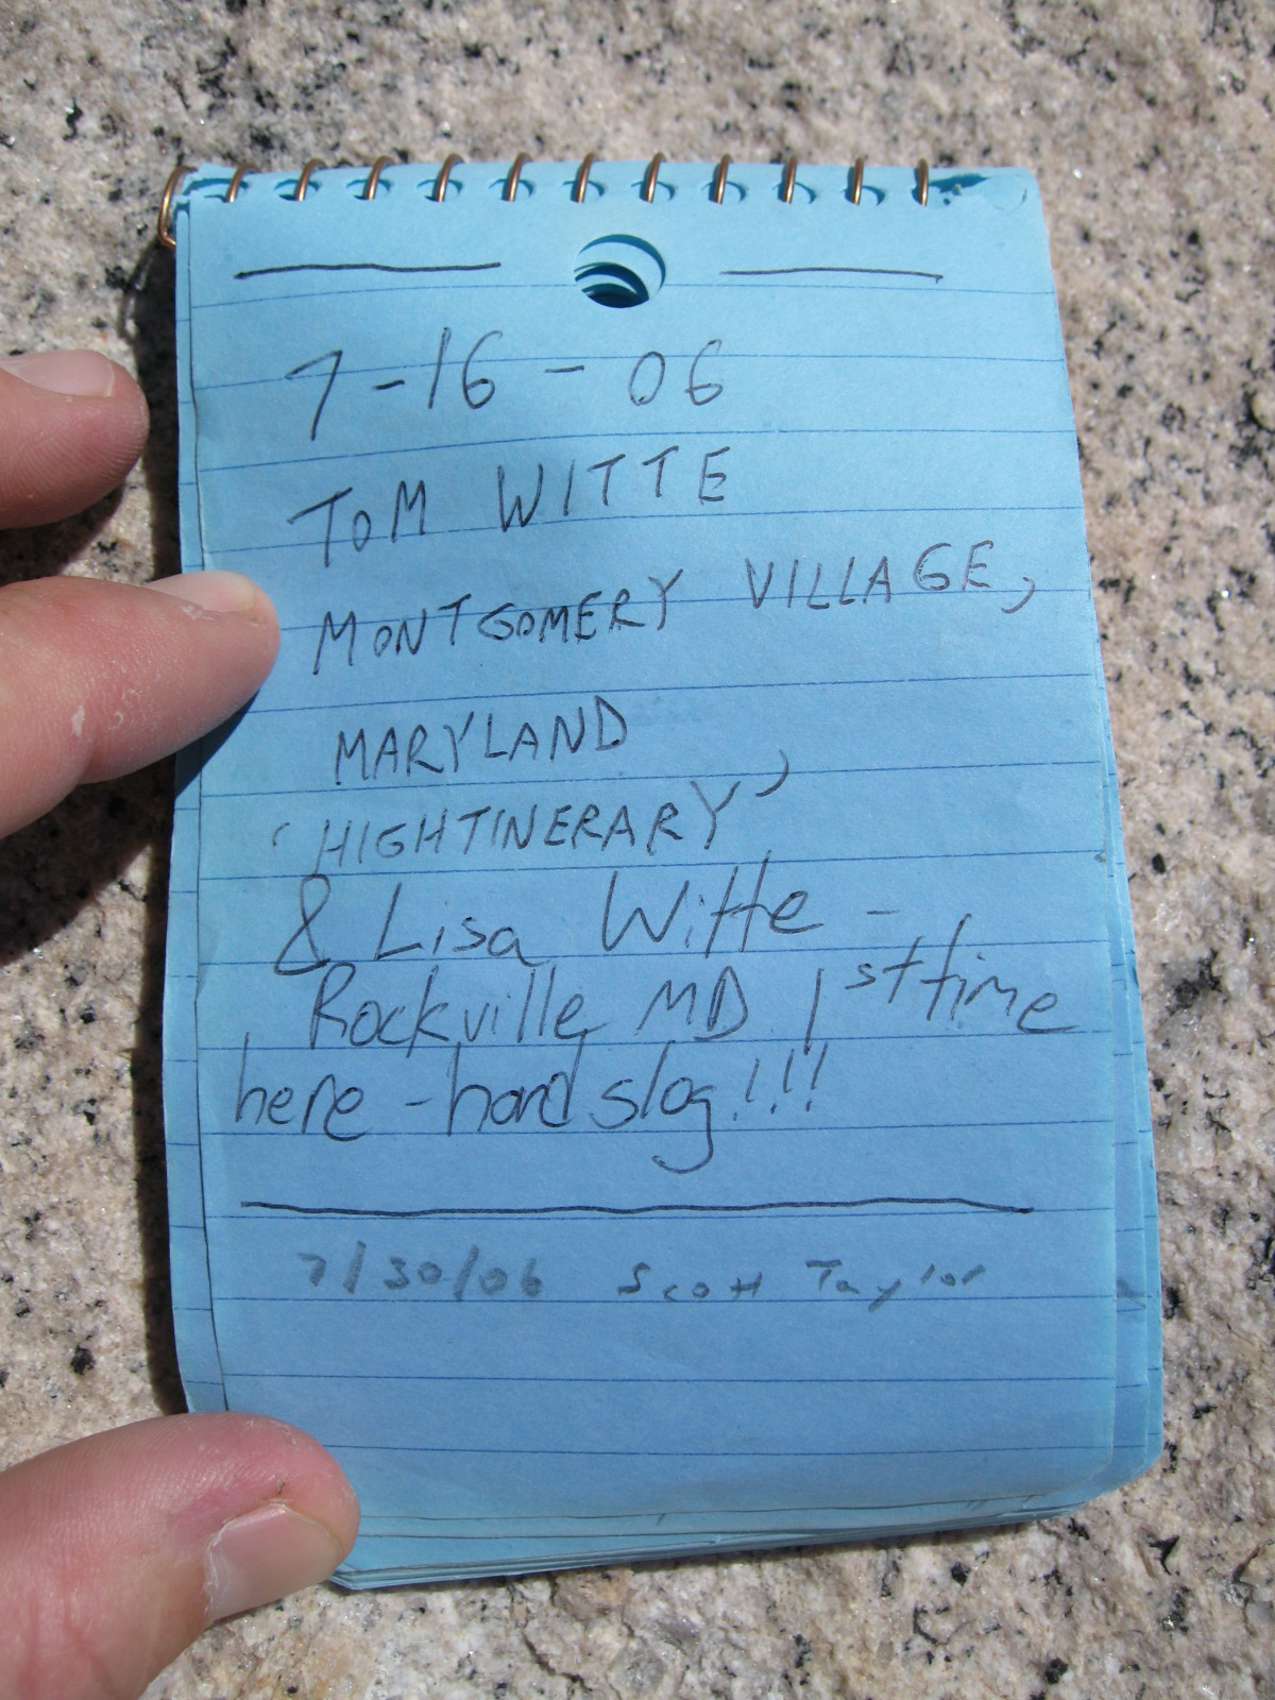 7-16-06
TOM WITTE
MONTGOMERY VILLAGE,
MARYLAND
'HIGHTINERARY'
& Lisa Witte -
Rockville, MD 1st time
here - hard slog!!!
7/30/06 Scott Taylor